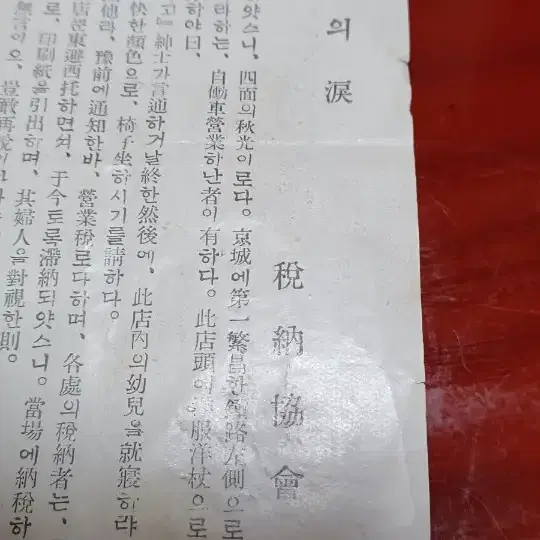 의 淚
稅納協會
얏스니, 四面의秋光이로다. 京城에第一繁昌한 路左側으로
自働車營業하난者이有하다. 此店頭 服洋杖으로
라하는,
하야曰,
고』紳士가言通하거날終한然後에, 此店內의幼兒을就寢하랴
快한顏色으로, 椅子坐하시기를請하다.
他라, 豫前에通知한바, 營業稅로다하며, 各處의稅納者는,
店은東避西托하면셔, 于今토록滯納되얏스니. 當場에納稅하
로, 印刷紙을引出하며, 其婦人을對視한則.
無言이오, 豈敢再說